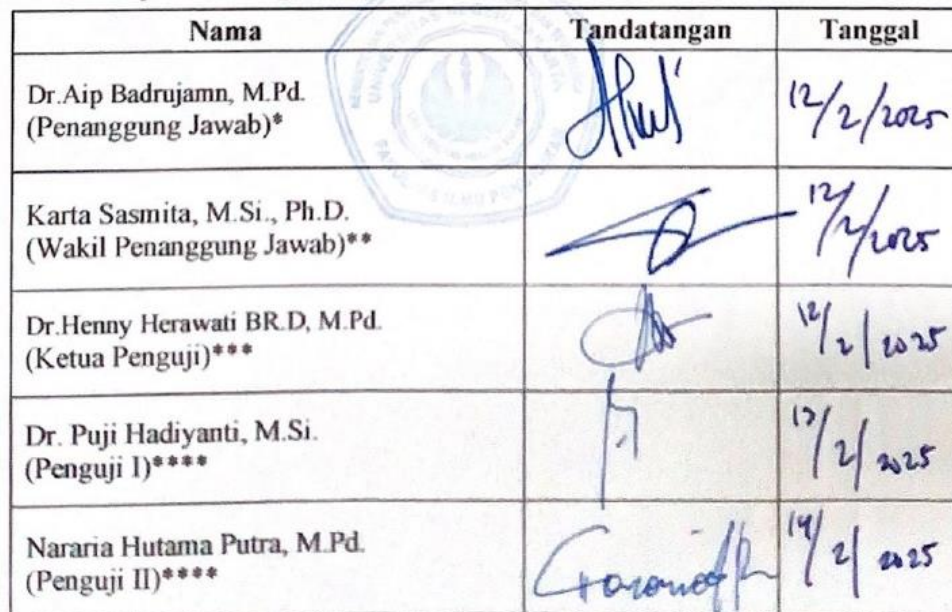 Nama Tandatangan Tanggal
Dr.Aip Badrujamn, M.Pd.
(Penanggung Jawab)*
12/2/2025
Karta Sasmita, M.Si., Ph.D.
(Wakil Penanggung Jawab)**
12/2/2025
Dr.Henny Herawati BR.D, M.Pd.
(Ketua Penguji)***
12/2/2025
Dr. Puji Hadiyanti, M.Si.
(Penguji I)****
13/2/2025
Nararia Hutama Putra, M.Pd.
(Penguji II)****
14/2/2025